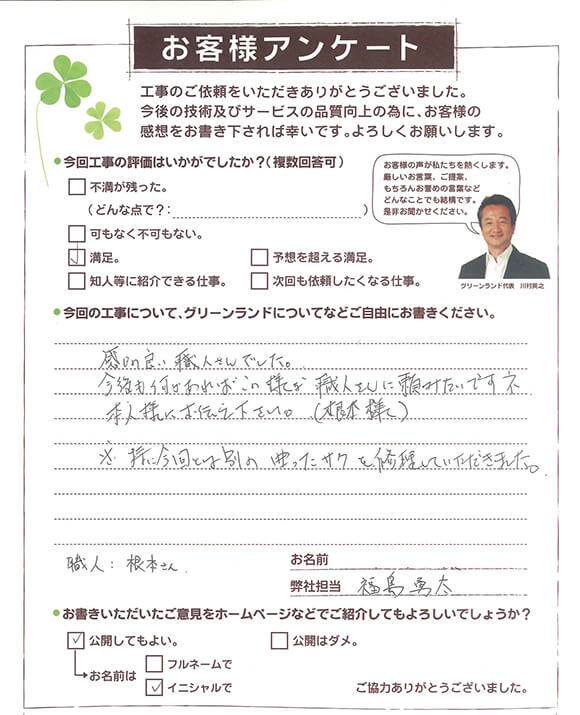 お客様アンケート
工事のご依頼をいただきありがとうございました。
今後の技術及びサービスの品質向上の為に、お客様の
感想をお書き下されば幸いです。よろしくお願いします。
●今回工事の評価はいかがでしたか?(複数回答可)
不満が残った。
(どんな点で?: )
可もなく不可もない。
満足。
予想を超える満足。
知人等に紹介できる仕事。
次回も依頼したくなる仕事。
お客様の声が私たちを熱くします。
厳しいお言葉、ご提案、
もちろんお誉めの言葉など
どんなことでも結構です。
是非お聞かせください。
グリーンランド代表 川村英之
●今回の工事について、グリーンランドについてなどご自由にお書きください。
感じの良い職人さんでした。
今後も何かあればこの様な職人さんに頼みたいですネ
本人様にお伝え下さい。(根本様へ)
※特に今回とは別の曲ったサクを修理していただきました。
職人:根本さん
お名前
弊社担当 福島勇太
●お書きいただいたご意見をホームページなどでご紹介してもよろしいでしょうか?
公開してもよい。
公開はダメ。
お名前は
フルネームで
イニシャルで
ご協力ありがとうございました。